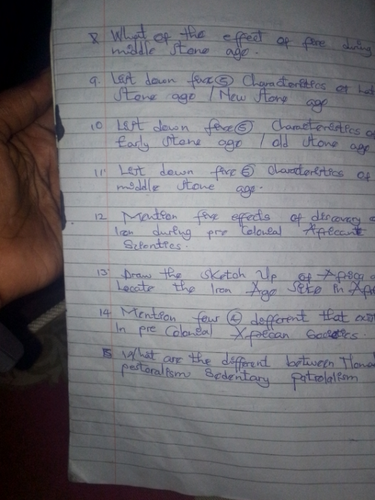 8. What of the effect of fire during
middle stone age.
9. List down five ⑤ Characteristics of Late
Stone age / New Stone age
10 List down five ⑤ Characteristics of
Early stone age / old stone age
11. List down five ⑤ Charactoristics of
middle stone age.
12. Mention five effects of discovery of
Iron during pre Colonial African
13 Draw the sketch Up of Africa
Locate the Iron Age Site in
14. Mention four ④ different that
In pre Colonial African
15 What are the different between
pastoralism Sedentary